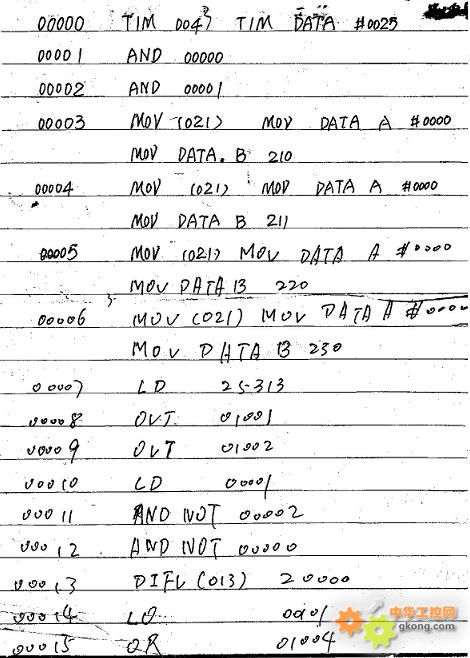 00000 TIM 0047 TIM DATA #0025
00001 AND 00000
00002 AND 00001
00003 MOV (021) MOV DATA A #0000
MOV DATA. B 210
00004 MOV (021) MOV DATA A #0000
MOV DATA B 211
00005 MOV (021) MOV DATA A #0000
MOV DATA B 220
00006 MOV (021) MOV DATA A #0000
MOV DATA B 230
00007 LD 25313
00008 OUT 01001
00009 OUT 01002
00010 LD 0001
00011 AND NOT 00002
00012 AND NOT 00000
00013 DIFU (013) 20000
00014 LD 0001
00015 OR 01004
中华工控网
gkong.com